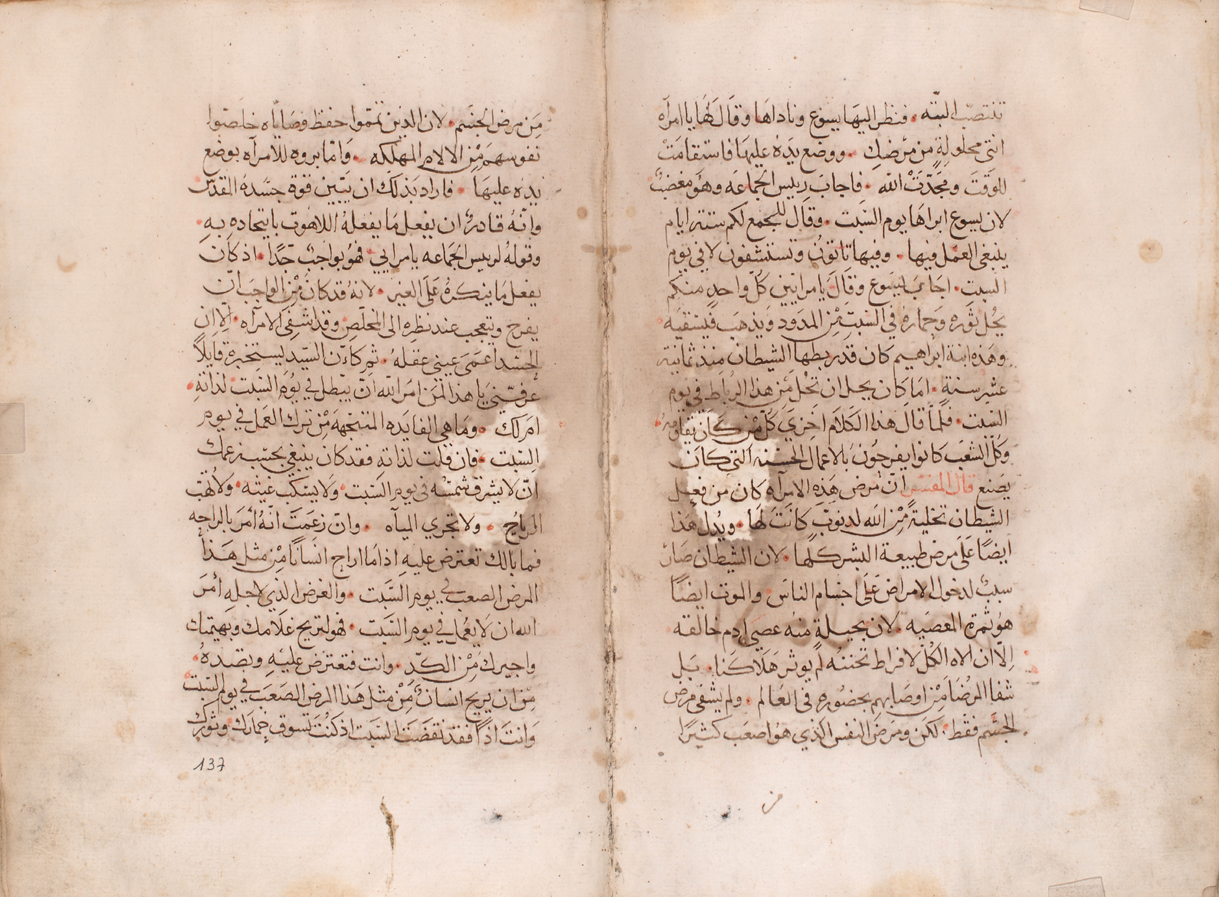 تنتصب البته • فنظر اليها يسوع وناداها وقال لها يا امراه
انتي محلولة من مرضك • ووضع يده عليها فاستقامت
للوقت ومجدت الله • فاجاب رييس الجماعه وهو مغضب
لان يسوع ابراها يوم السبت • وقال للجمع لكم ستة ايام
ينبغى العمل فيها • وفيها تاتون وتستشفون لا فى يوم
السبت • اجاب يسوع وقال يا مراييين كل واحد منكم
يحل ثوره وحماره في السبت من المدود ويذهب فيسقيه
وهذه ابنة ابراهيم كان قد ربطها الشيطان منذ ثمانية
عشر سنة • اما كان يحل ان تحل من هذا الرباط فى يوم
السبت • فلما قال هذا الكلام اخزي كل من كان يقاومه
وكل الشعب كانوا يفرحون بالاعمال الحسنه التي كان
يصنع قال المفسر ان مرض هذه الامراه كان من فعل
الشيطان تخلية من الله لدنوب كانت لها • ويدل هذا
ايضًا على مرض طبيعة البشر كلها • لان الشيطان صار
سبب لدخول الامراض على اجسام الناس • والموت ايضًا
هو ثمرة المعصيه • لان بحيلة منه عصي ادم خالقه
الا ان الاه الكل لافراط تحننه لم يوثر هلاكنا • بل
شفا المرضا من اوصابهم بحضوره فى العالم • ولم يشفى مرض
الجسم فقط • لكن ومرض النفس الذي هو اصعب كثيرًا
من
من مرض الجسم • لان الذين تمموا حفظ وصاياه خلصوا
نفوسهم من الالام المهلكه • واما بروه للامراه بوضع
يده عليها • فاراد بذلك ان يتبين قوة جسده القدس
وانه قادر ان يفعل ما يفعله اللاهوت باتحاده به
وقوله لرييس الجماعه يا مرايي • فهو بواجب جدًا • اذ كان
يفعل ما ينكره على الغير • لانه قد كان من الواجب ان
يفرح ويتعجب عند نظره الى المخلص وقد اشفى الامراه • الا ان
الحسد اعمى عيني عقله • ثم كان السيد يستخبره قايلاً
عرفني يا هذا لمن امر الله ان يبطل في يوم السبت لذاته •
ام لك • وما هي الفايده المتجهه من ترك العمل في يوم
السبت • فان قلت لذاته فقد كان ينبغي بحسب زعمك
ان لا يشرق شمسه في يوم السبت • ولا يسكب غيثه • ولا تهب
الرياح • ولا تجري المياه • وان زعمت انه امر بالراحه
فما بالك تعترض عليه اذا ما اراح انسانًا من مثل هذا
المرض الصعب في يوم السبت • والغرض الذي لاجله امر
الله ان لا يعمل في يوم السبت • فهو لتريح غلامك وبهيمتك
واجيرك من الكد • وانت فتعترض عليه وتصده
من ان يريح انسان من مثل هذا المرض الصعب في يوم السبت
وانت اذًا فقد نقضت السبت اذ كنت تسوق حمارك وثورك
137